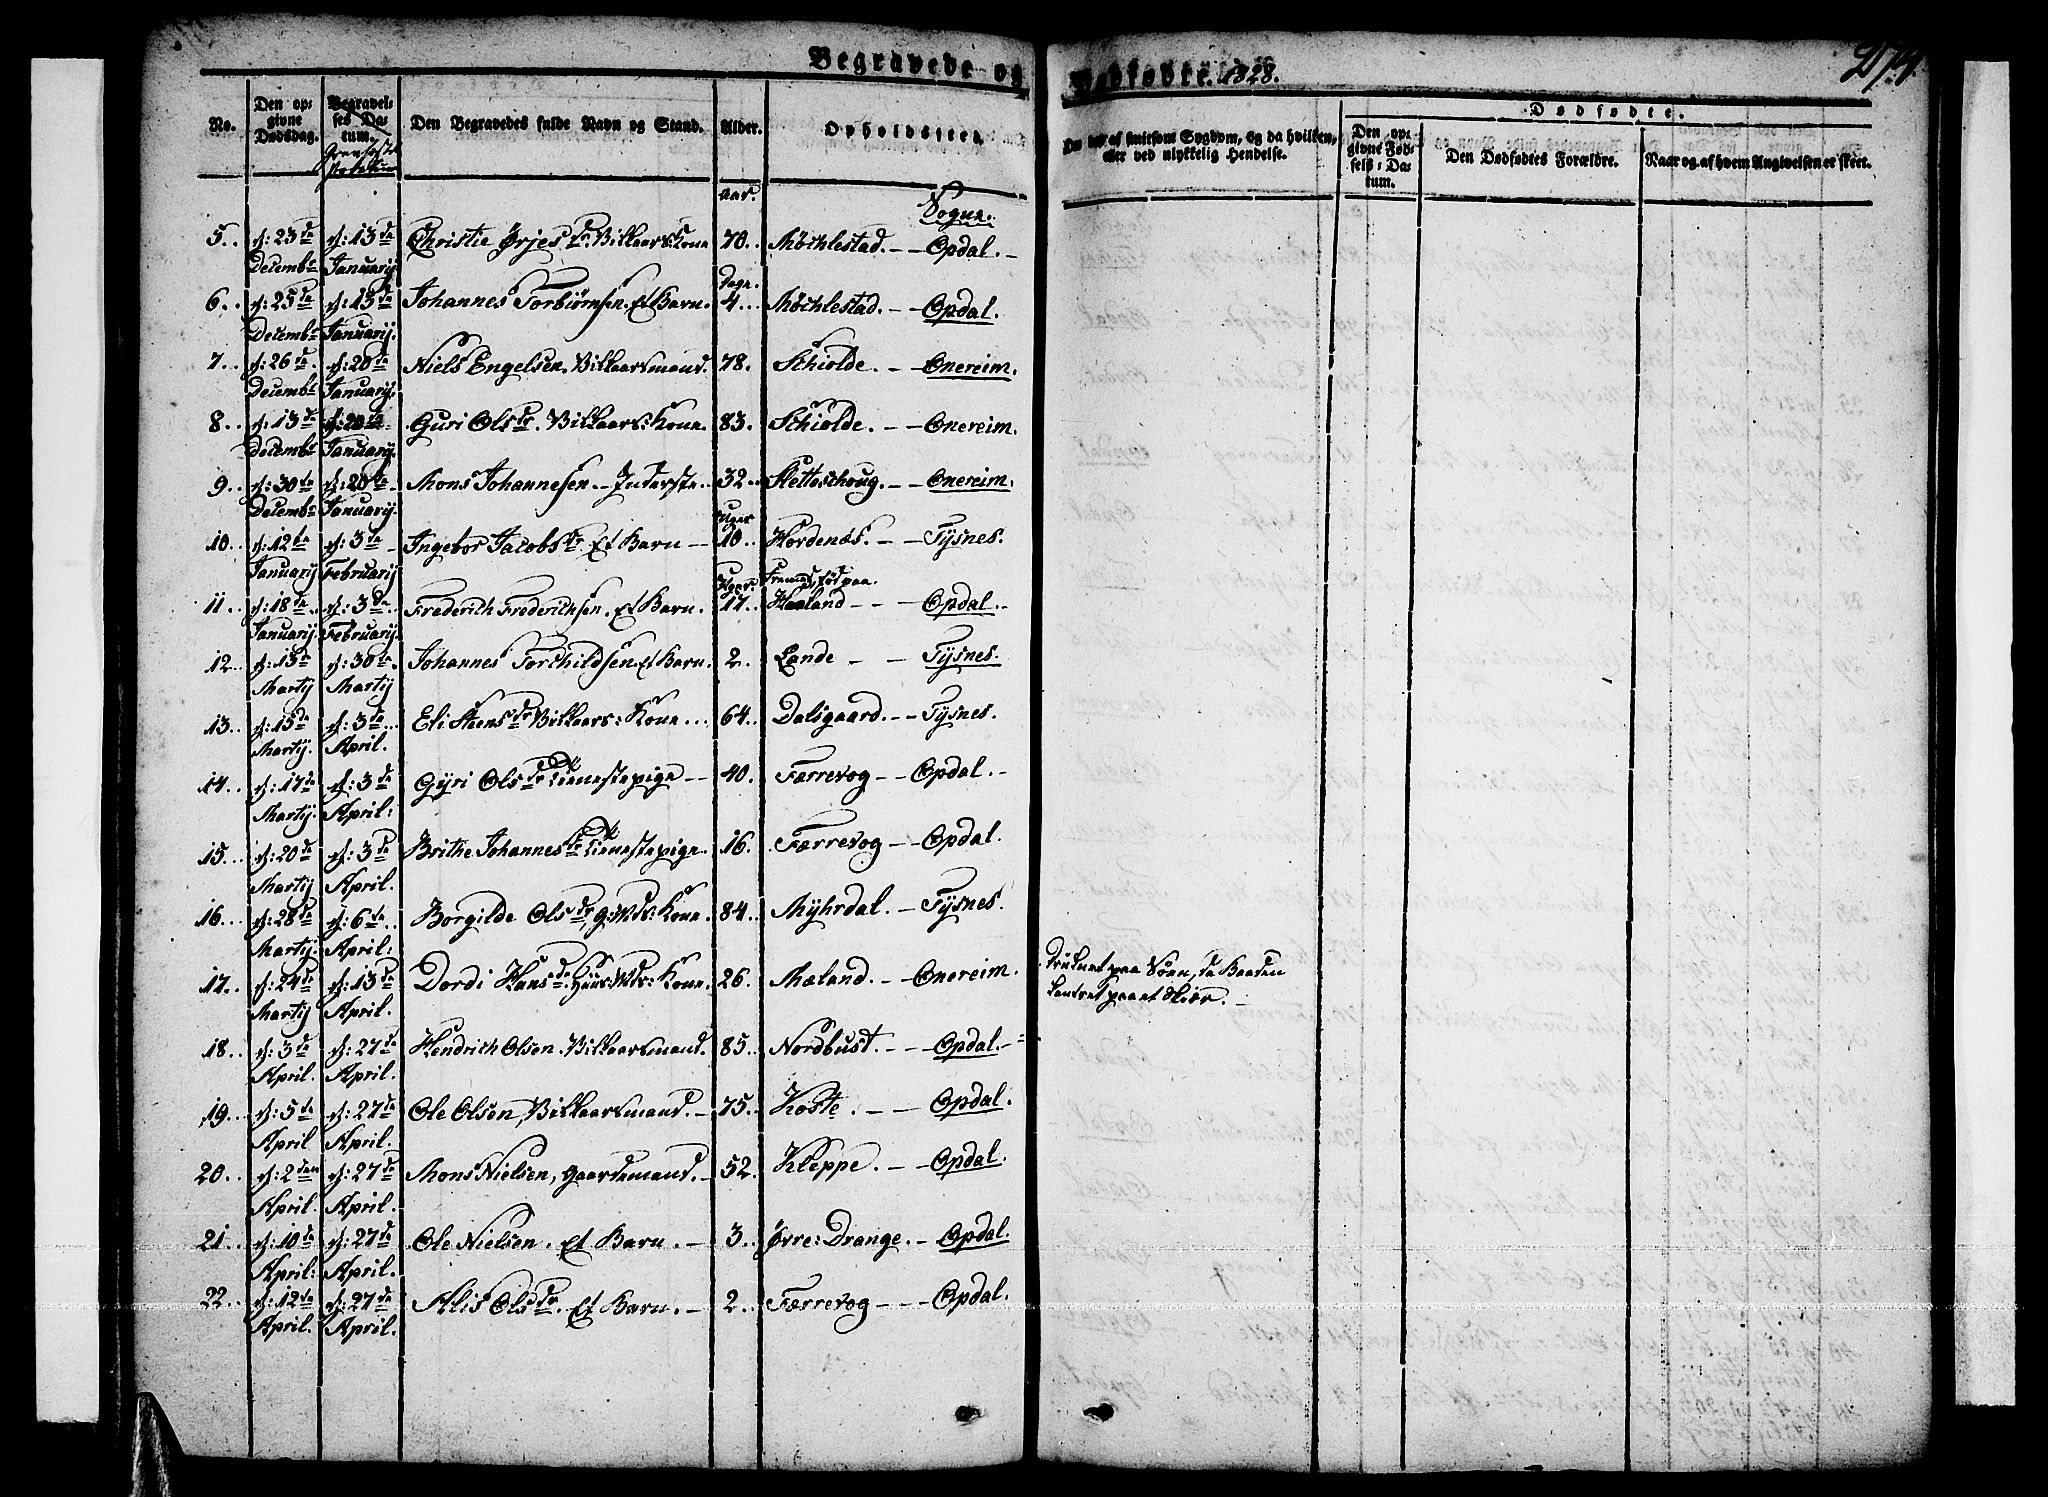 Begravede og Dødfødte. 1828.
No.
Den opgivne Dødsdag.
Begravelses Datum.
Den Begravedes fulde Navn og Stand.
Alder.
Opholdssted.
eller ved ulykkelig Hendelse.
Dødfødte.
Den opgivne Fødsels-Datum.
Den Dødfødtes Forældre.
Naar og af hvem Angivelsen er skeet.
Aar.
Sogne.
5.. d: 23de Decembr d: 13de Januarij Christie Ørjes Dr Vilkaars Kone 70.. Møchlestad. -- Opdal. -
Dage.
6.. d: 25de Decembr d: 13de Januarij. Johannes Torbiørnsen. Et Barn. 4... Møchlestad. -- Opdal.
7.. d: 26de Decembr d: 20de Januarij. Niels Engelsen. Vilkaarsmand. 78. Schiolde. -- Onereim.
8.. d: 13de Decembr d: 20de Januarij. Guri Olsdr. Vilkaars: Kone. 83. Schiolde. -- Onereim.
9.. d: 30te Decembr d: 20de Januarij. Mons Johannesen - Inderste.. 32.. Fletteschoug. -- Onereim.
Uger
10.. d: 12te Januarij d: 3de Februarij Ingebor Jacobsdr Et Barn -- 10.. Hordenæs. -- Tysnes.
fød paa
11.. d: 18de Januarij. d: 3de Februarij. Frederich Frederichsen. Et Barn. 17.. Haaland -- Opdal. -
12.. d: 13de Martij d: 30te Martij Johannes Torchildsen. Et Barn. 2. Lande -- Tysnes.
13.. d: 15de Martij. d: 3de April. Eli Steensdr Vilkaars: Kone... 64.. Dalsgaard. -- Tysnes.
14.. d: 17de Martij: d: 3de April: Gyri Olsdr Tienestepige -- 40. Færrevog -- Opdal. -
15... d: 20de Martij d: 3de April. Brithe Johannesdr Tienestepige. 16. Færrevog -- Opdal.
16.. d: 28de Martij. d: 6te April: Borgilde Olsdr, G: Mds: Kone. 84.. Myhrdal. -- Tysnes.
17.. d: 24de Martij d: 13de April. Dordi Hansdr. Huus: Mds: Kone. 26. Mæland. -- Onereim. Druknet paa Søen, da Baaden
kantret paa et Skiær. -
18.. d: 3de April. d: 27de April. Hendrich Olsen. Vilkaarsmand. 85. Nordhust. -- Opdal. -
19.. d: 5te April d: 27de April. Ole Olsen, Vilkaarsmand. - 75. Hoste. -- Opdal.
20.. d: 2den April. d: 27de April. Mons Nielsen, Gaardemand. - 52. Kleppe. -- Opdal.
21.. d: 10de April: d: 27de April. Ole Nielsen. Et Barn. - 3.. Øvre: Drange. - Opdal.
22.. d: 12te April. d: 27de April. Alis Olsdr. Et Barn. - 2.. Færrevog -- Opdal.